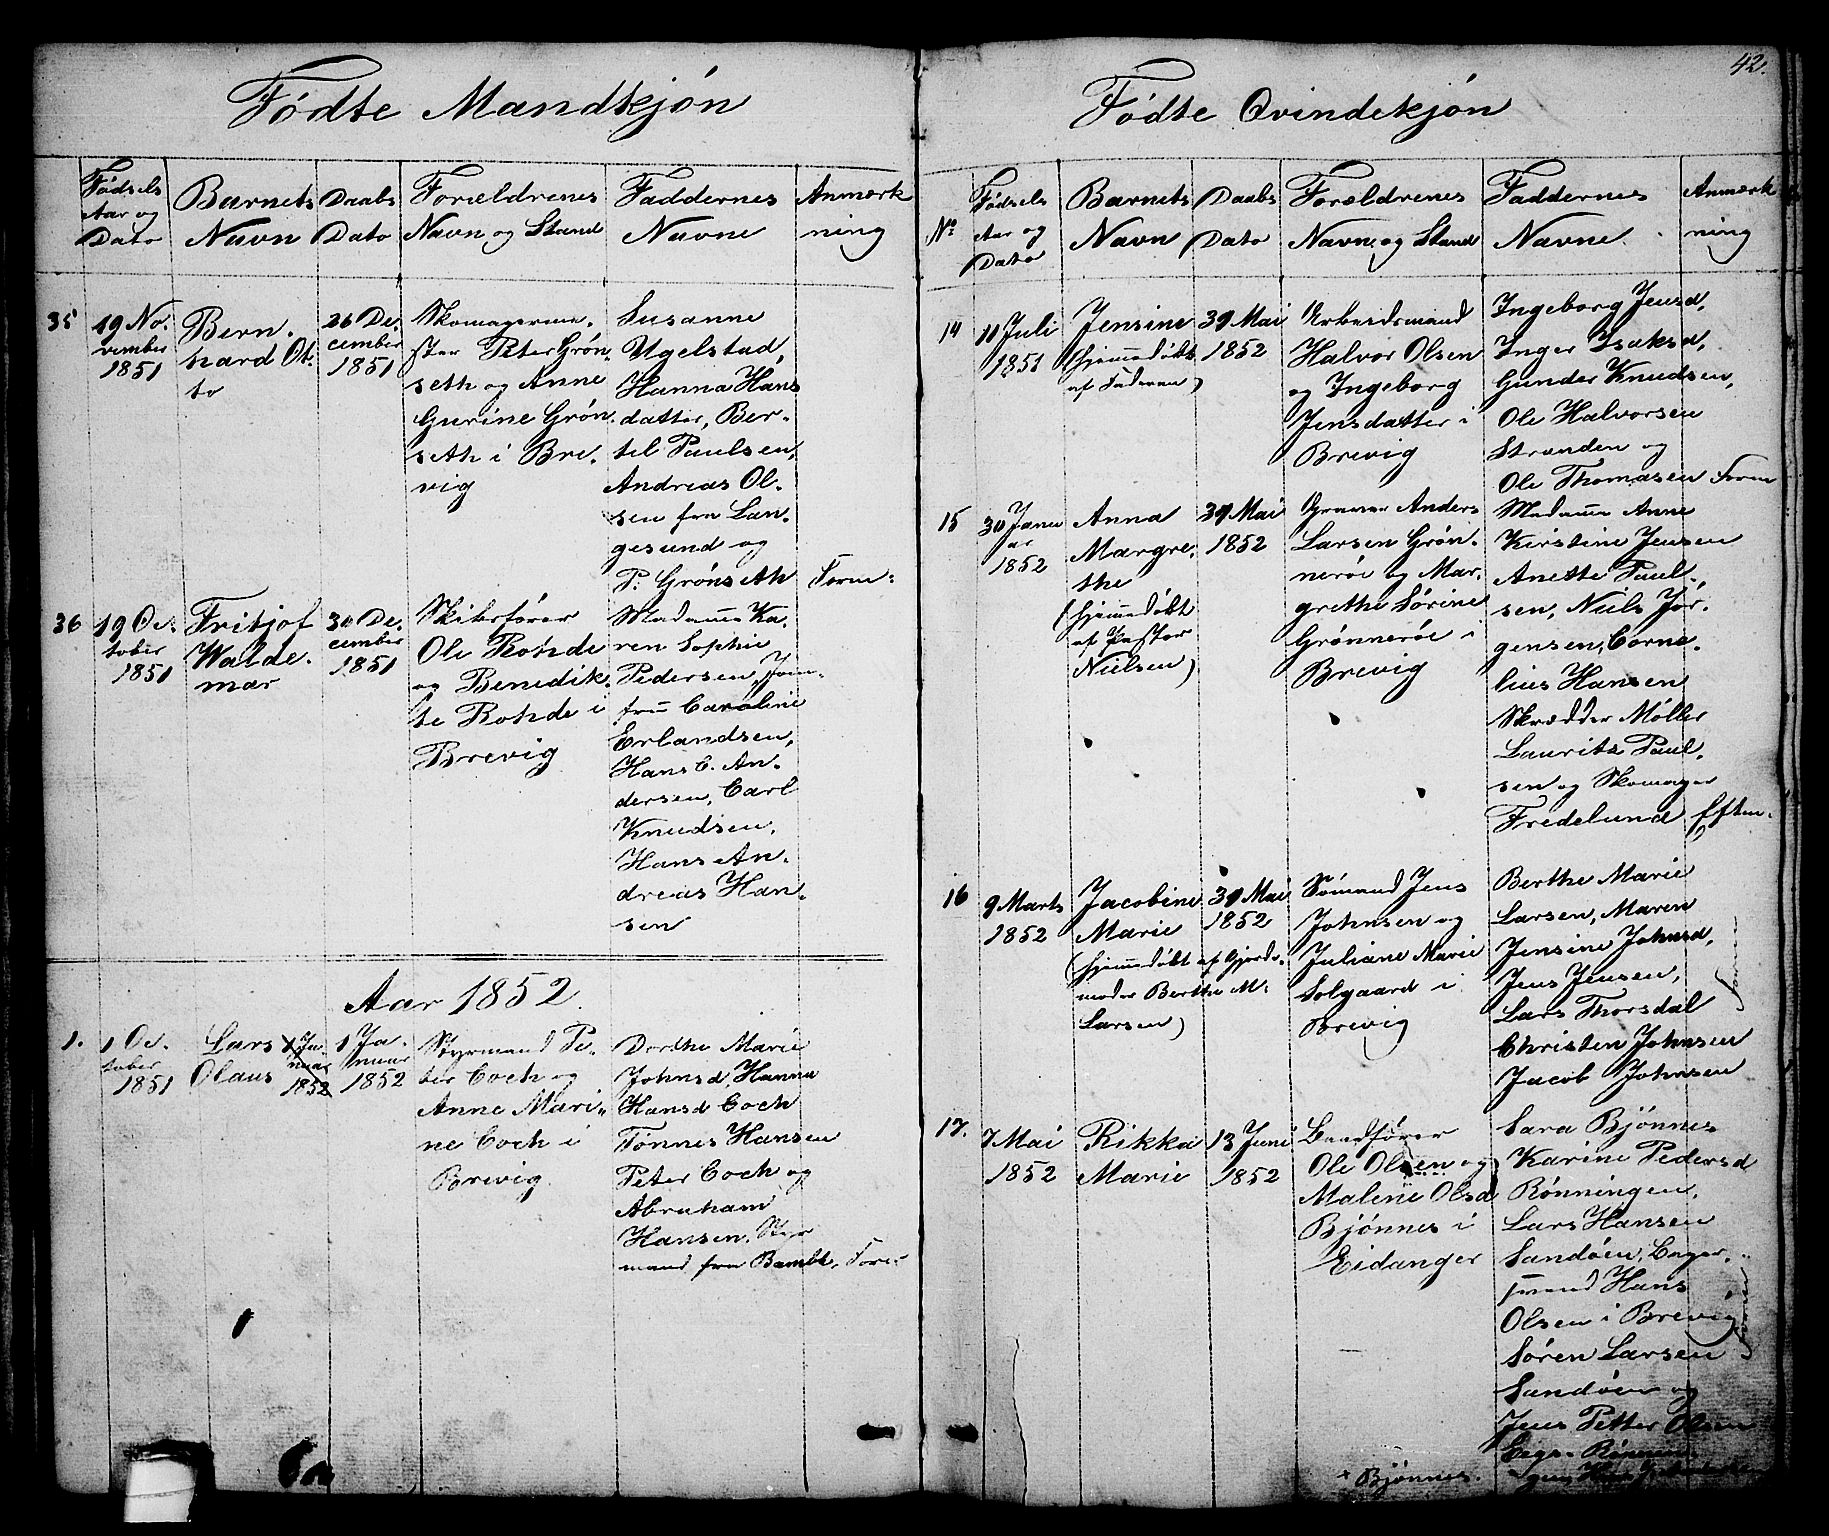 Fødte Mandkjøn
Fødsels
Aar og
Dato
Barnets
Navn
Daabs
Dato
Forældrenes
Navn og Stand
Faddernes
Navne
Anmærk
ning
35
19 No-
vember
1851
Bern-
hard Ot-
to
26 De-
cember
1851
Skomagerme-
ster Peter Grön
seth og Anne
Gurine Grön-
seth i Bre-
vig
Susanne
Ugelstad,
Hanna Hans
datter, Ber-
tel Paulsen,
Andreas Ol-
sen fra Lan-
gesund og
P. Grönseth
Form-
36
19 Oc-
tober
1851
Fritjof
Walde-
mar
30 De-
cember
1851
Skibsfører
Ole Rohde
og Benedik-
te Rohde i
Brevig
Madame Ka-
ren Sophie
Pedersen, Jom-
fru Caroline
Erlandsen,
Hans C. An-
dersen, Carl
Knudsen,
Hans An-
dreas Han-
sen
Aar 1852.
1.
1 Oc-
tober
1851
Lars
Olaus
1 Ja-
nuar
1852
1 Ja-
nuar
1852
Styrmand Pe-
ter Coch og
Anne Mari-
ne Coch i
Brevig
Dorthe Marie
Johnsd Hanna
Hansd Coch
Tønnes Hansen
Peter Coch og
Abraham
Hansen, Styr
mand fra Bamble, Form-
42.
Fødte Qvindekjøn
No
Fødsels
Aar og
Dato
Barnets
Navn
Daabs
Dato
Forældrenes
Navn og Stand
Faddernes
Navne.
Anmærk
ning
14
11 Juli
1851
Jensine
(hjemmedøbt
af Faderen)
31 Mai
1852
Arbeidsmand
Halvor Olsen
og Ingeborg
Jensdatter i
Brevig
Ingeborg Jensd,
Inger Isaksd,
Gunder Knudsen,
Ole Halvorsen
Stranden og
Ole Thomasen Form
15
30 Janu
ar
1852
Anna
Margre-
the
(hjemmedøbt
af Pastor
Nielsen)
31 Mai
1852
Gravør Anders
Larsen Grön-
neröe og Mar-
grethe Sörine
Grönneröe i
Brevig
Madame Anne
Kirstine Jensen
Anette Paul-
sen, Niels Jör-
gensen, Corne-
lius Hansen
Skrædder Møller
Laurits Paul-
sen og Skomager
Fredelund Eftm-
16
9 Marts
1852
Jacobine
Marie
(hjemmedøbt af Gjorde-
moder Berthe M.
Larsen)
31 Mai
1852
Sømand Jens
Johnsen og
Juliane Marie
Solgaard i
Brevig
Berthe Marie
Larsen, Maren
Jensine Johnsd,
Jens Jensen,
Lars Thorsdal
Christen Johnsen
Jacob Johnsen
Form-
17.
7 Mai
1852
Rikka
Marie
13 Juni
1852
Baadfører
Ole Olsen og
Malene Olsd
Bjønnes i
Eidanger
Sara Bjønnes
Karine Pedersd
Rønningen,
Lars Hansen
Sandøen,
Hans
Olsen i Brevig
Søren Larsen
Sandøen og
Jens Petter Olsen
+ Bjønnes.